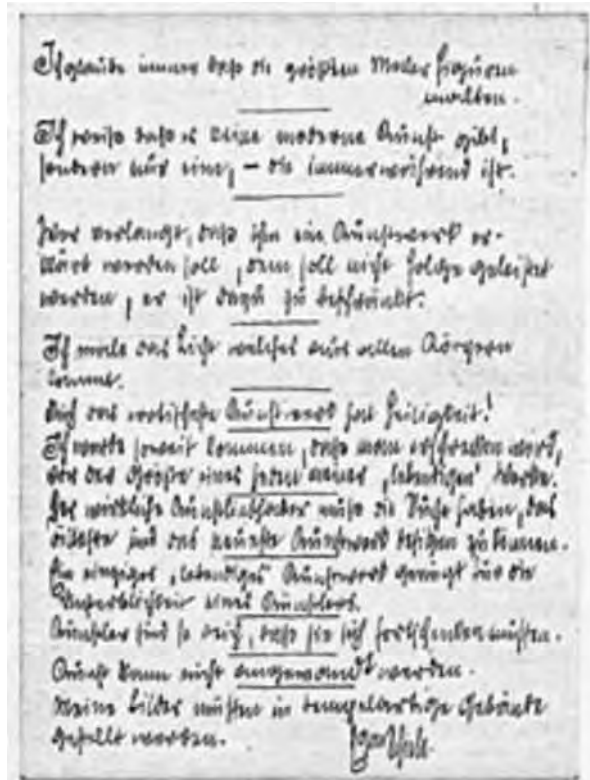 Ich glaube immer daß die größten Maler Figuren
malten.
Ich weiß daß es keine moderne Kunst gibt,
sondern nur eine, – die immerwährend ist.
Wer verlangt, daß ihm ein Kunstwerk er-
klärt werden soll, dem soll nicht Folge geleistet
werden, er ist dazu zu beschränkt.
Ich male das Licht welches aus allen Körpern
kommt.
Auch das erotischste Kunstwerk hat Heiligkeit!
Ich werde soweit kommen, daß man erschrecken wird,
vor der Größe eines jeden meiner „lebendigen" Werke.
Der wirkliche Kunstliebhaber muß die Sucht haben, das
älteste und das neueste Kunstwerk besitzen zu können.
Ein einziges „lebendiges" Kunstwerk genügt für die
Unsterblichkeit eines Künstlers.
Künstler sind so reich, daß sie sich fortschenken müssen.
Kunst kann nicht angewandt werden.
Meine Bilder müssen in tempelartige Gebäude
gestellt werden.